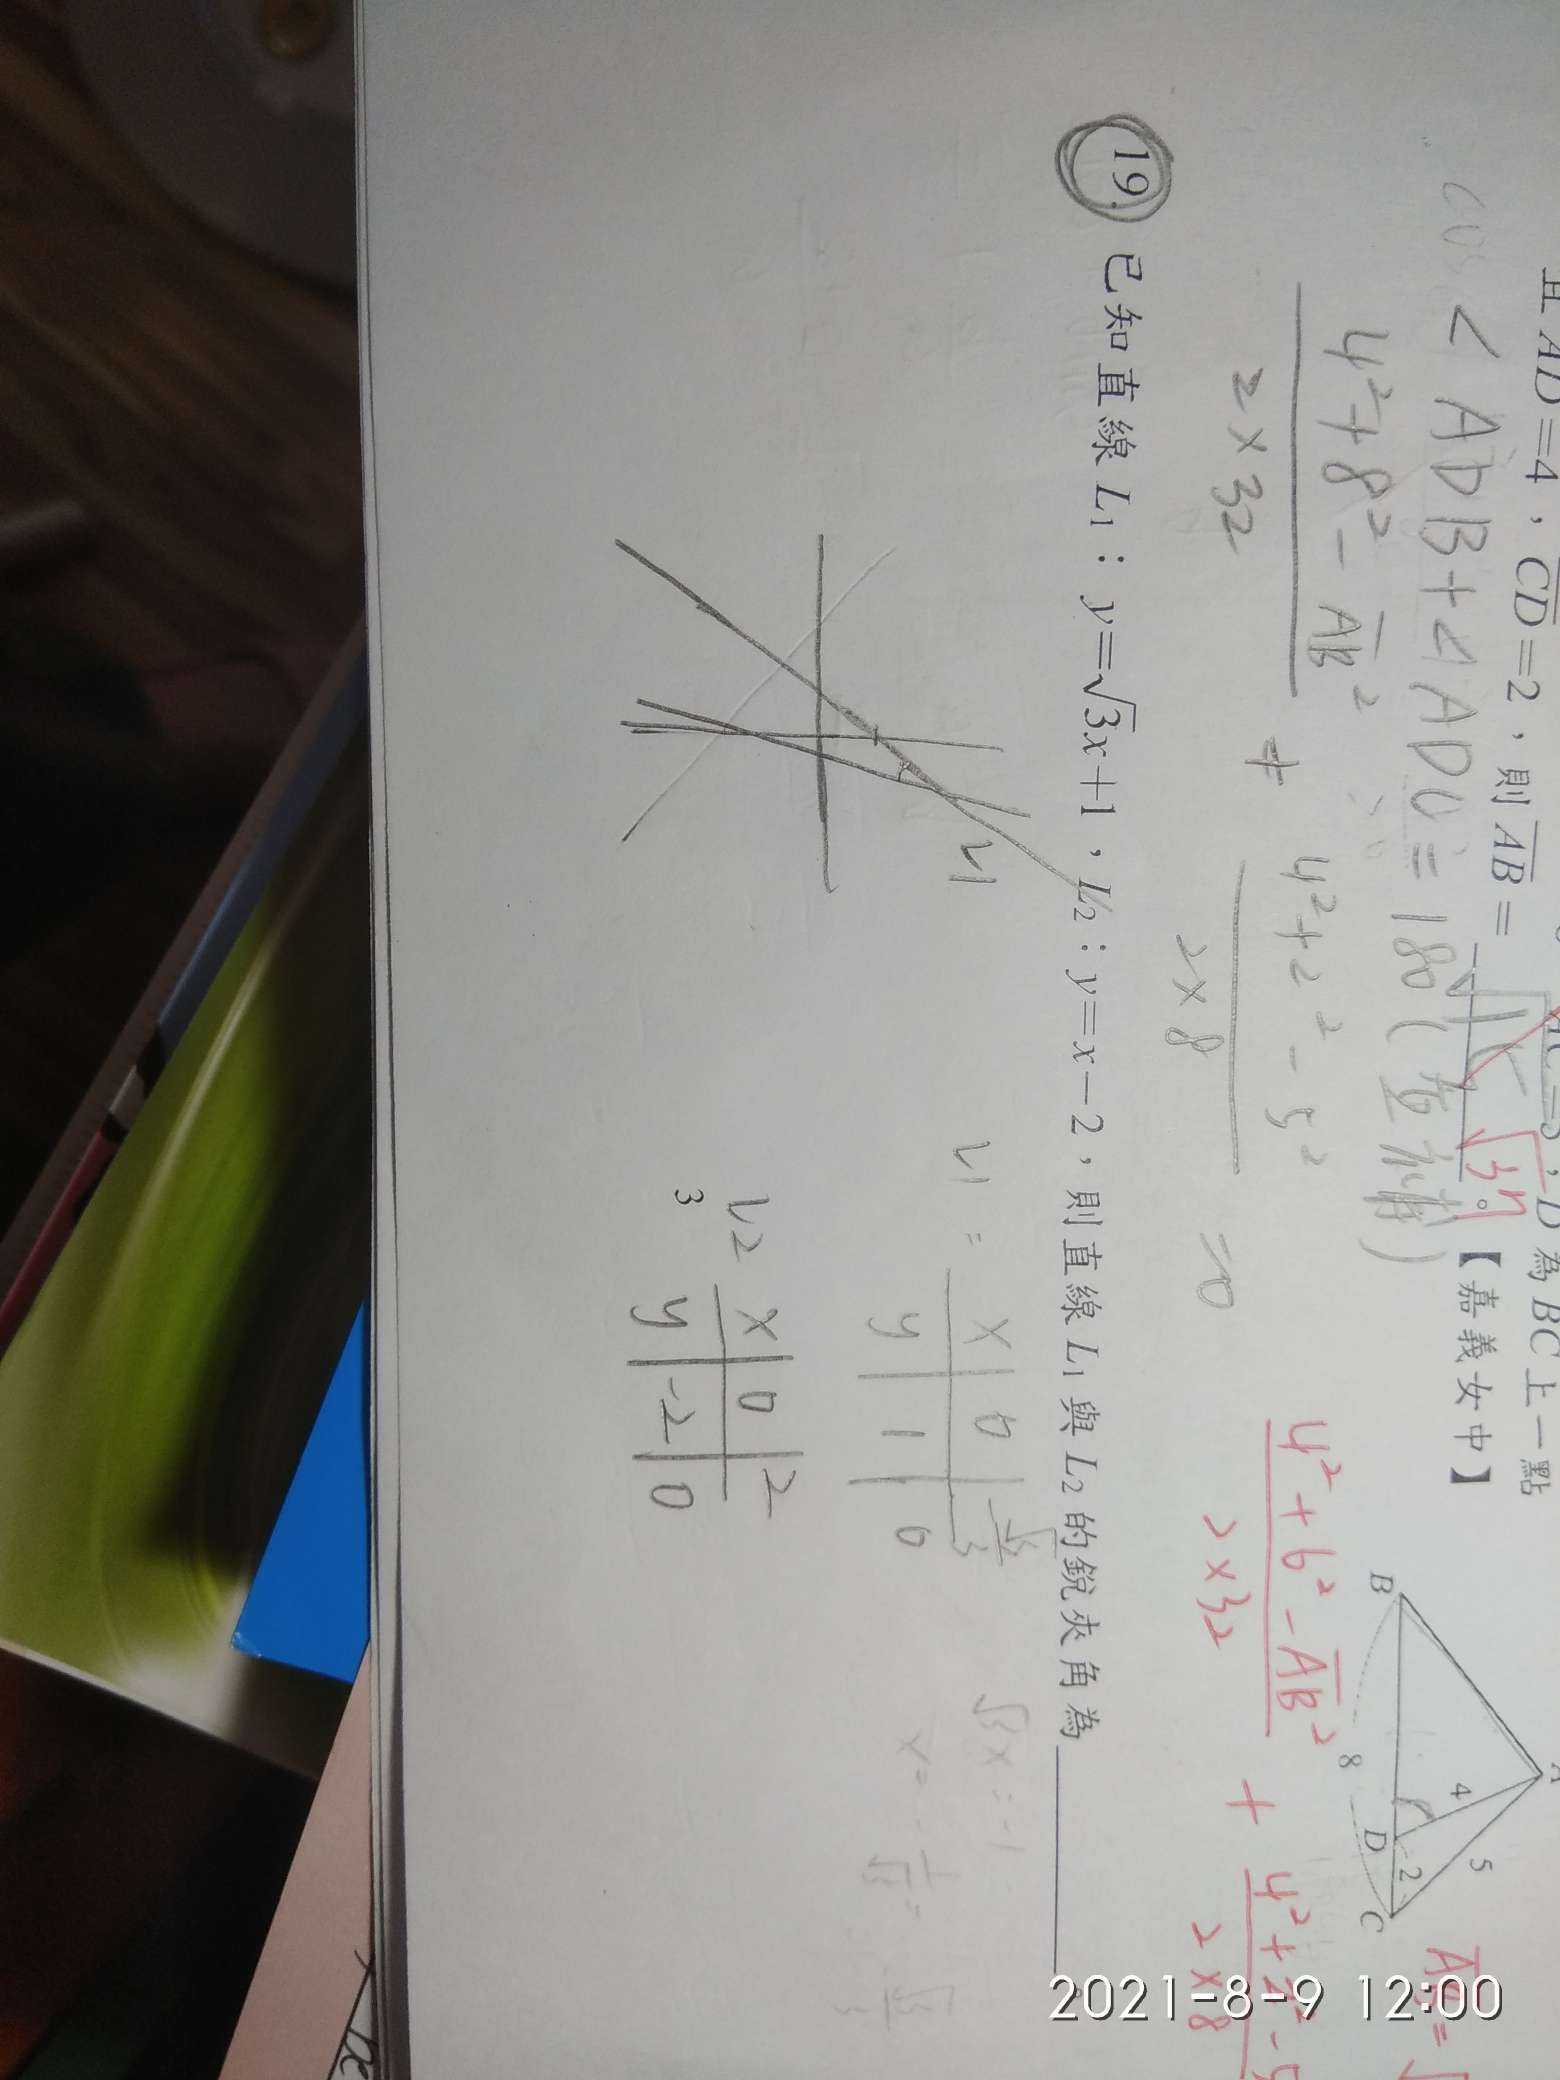 且 AD=4，CD=2，則 AB=
√37。【嘉義女中】
D 為 BC 上一點
cos < ADB + < ADC = 180 (互補)
4²+8²-AB²
2×32
+
4²+2²-5²
2×8
=0
4²+6²-AB²
2×32
+
4²+2²-5
2×8
AB=√
A
B
C
D
4
5
2
8
19. 已知直線 L₁：y=√3x+1，L₂：y=x-2，則直線 L₁ 與 L₂ 的銳夾角為
L1
L1 =
x 0 -√3/3
y 1 0
L2
3
x 0 2
y -2 0
√3x=-1
x=-1/√3=
√3/3
2021-8-9 12:00